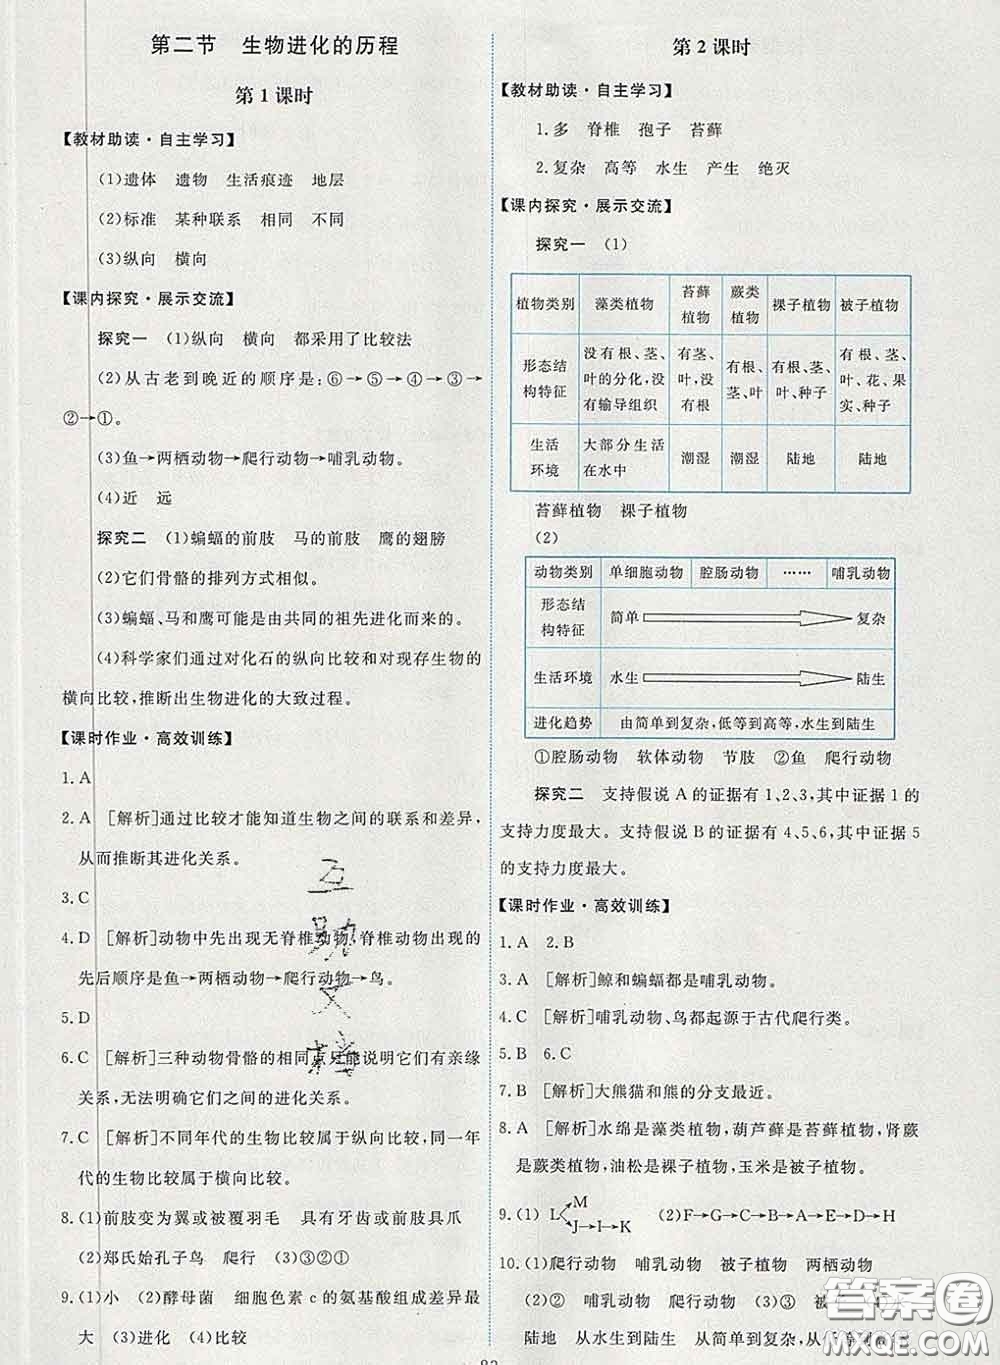 第二节 生物进化的历程
第1课时
【教材助读·自主学习】
(1)遗体 遗物 生活痕迹 地层
(2)标准 某种联系 相同 不同
(3)纵向 横向
【课内探究·展示交流】
探究一 (1)纵向 横向 都采用了比较法
(2)从古老到晚近的顺序是:⑥→⑤→④→③→
②→①。
(3)鱼→两栖动物→爬行动物→哺乳动物。
(4)近 远
探究二 (1)蝙蝠的前肢 马的前肢 鹰的翅膀
(2)它们骨骼的排列方式相似。
(3)蝙蝠、马和鹰可能是由共同的祖先进化而来的。
(4)科学家们通过对化石的纵向比较和对现存生物的
横向比较,推断出生物进化的大致过程。
【课时作业·高效训练】
1.A
2.A [解析]通过比较才能知道生物之间的联系和差异,
从而推断其进化关系。
3.C
4.D [解析]动物中先出现无脊椎动物,脊椎动物出现的
先后顺序是鱼→两栖动物→爬行动物→鸟。
5.D
6.C [解析]三种动物骨骼的相同点只能说明它们有亲缘
关系,无法说明它们之间的进化关系。
7.C [解析]不同年代的生物比较属于纵向比较,同一年
代的生物比较属于横向比较。
8.(1)前肢变为翼或被覆羽毛 具有牙齿或前肢具爪
(2)郑氏始孔子鸟 爬行 (3)③②①
9.(1)小 (2)酵母菌 细胞色素c的氨基酸组成差异最
大 (3)进化 (4)比较
第2课时
【教材助读·自主学习】
1.多 脊椎 孢子 苔藓
2.复杂 高等 水生 产生 绝灭
【课内探究·展示交流】
探究一 (1)
植物类别 藻类植物 苔藓植物 蕨类植物 裸子植物 被子植物
形态结构特征 没有根、茎、叶的分化,没有输导组织 有茎、叶,没有根 有根、茎、叶 有根、茎、叶、种子 有根、茎、叶、花、果实、种子
生活环境 大部分生活在水中 潮湿 潮湿 陆地 陆地
苔藓植物 裸子植物
(2)
动物类别 单细胞动物 腔肠动物 …… 哺乳动物
形态结构特征 简单 复杂
生活环境 水生 陆生
进化趋势 由简单到复杂,低等到高等,水生到陆生
①腔肠动物 软体动物 节肢 ②鱼 爬行动物
探究二 支持假说A的证据有1、2、3,其中证据1的
支持力度最大。支持假说B的证据有4、5、6,其中证据5
的支持力度最大。
【课时作业·高效训练】
1.A 2.B
3.A [解析]鲸和蝙蝠都是哺乳动物。
4.C [解析]哺乳动物、鸟都起源于古代爬行类。
5.B 6.C
7.B [解析]大熊猫和熊的分支最近。
8.A [解析]水绵是藻类植物,葫芦藓是苔藓植物,肾蕨
是蕨类植物,油松是裸子植物,玉米是被子植物。
9.(1) L M J→I→K (2)F→G→C→B→A→E→D→H
10.(1)爬行动物 哺乳动物 被子植物 两栖动物
(2)② 哺乳动物 爬行动物 (3)③
陆地 从水生到陆生 从简单到复杂
互助文档
答案圈